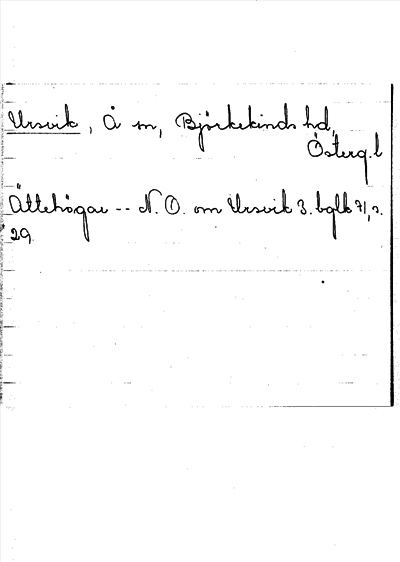 Ursvik, Å sn, Björkekinds hd,
Österg. l
Ättehögar -- N. O. om Ursvik 3. bglb 71, s.
29.